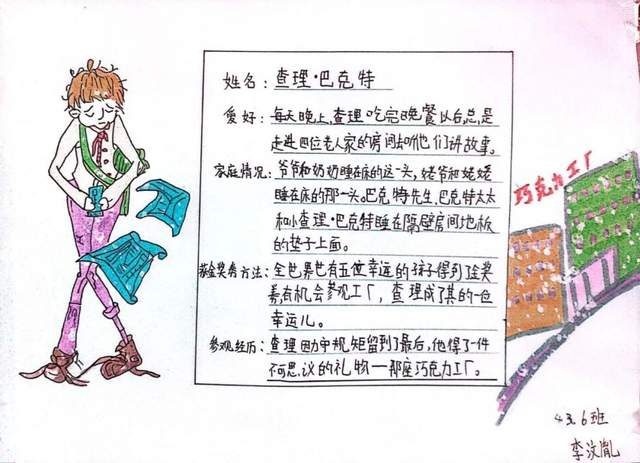 姓名：查理·巴克特
爱好：每天晚上，查理吃完晚餐以后，总是
走进四位老人家的房间和他们讲故事。
家庭情况：爷爷和奶奶睡在床的这一头，姥爷和姥姥
睡在床的那一头。巴克特先生、巴克特太太
和小查理·巴克特睡在隔壁房间地板
的垫子上面。
获金奖券方法：全世界也有五位幸运的孩子得到了金奖
券，有机会参观工厂，查理成了其中的一位
幸运儿。
参观经历：查理因为守规矩留到了最后，他得了一件
不可思议的礼物—那座巧克力工厂。
巧克力工厂
4.3.6班
李汶胤